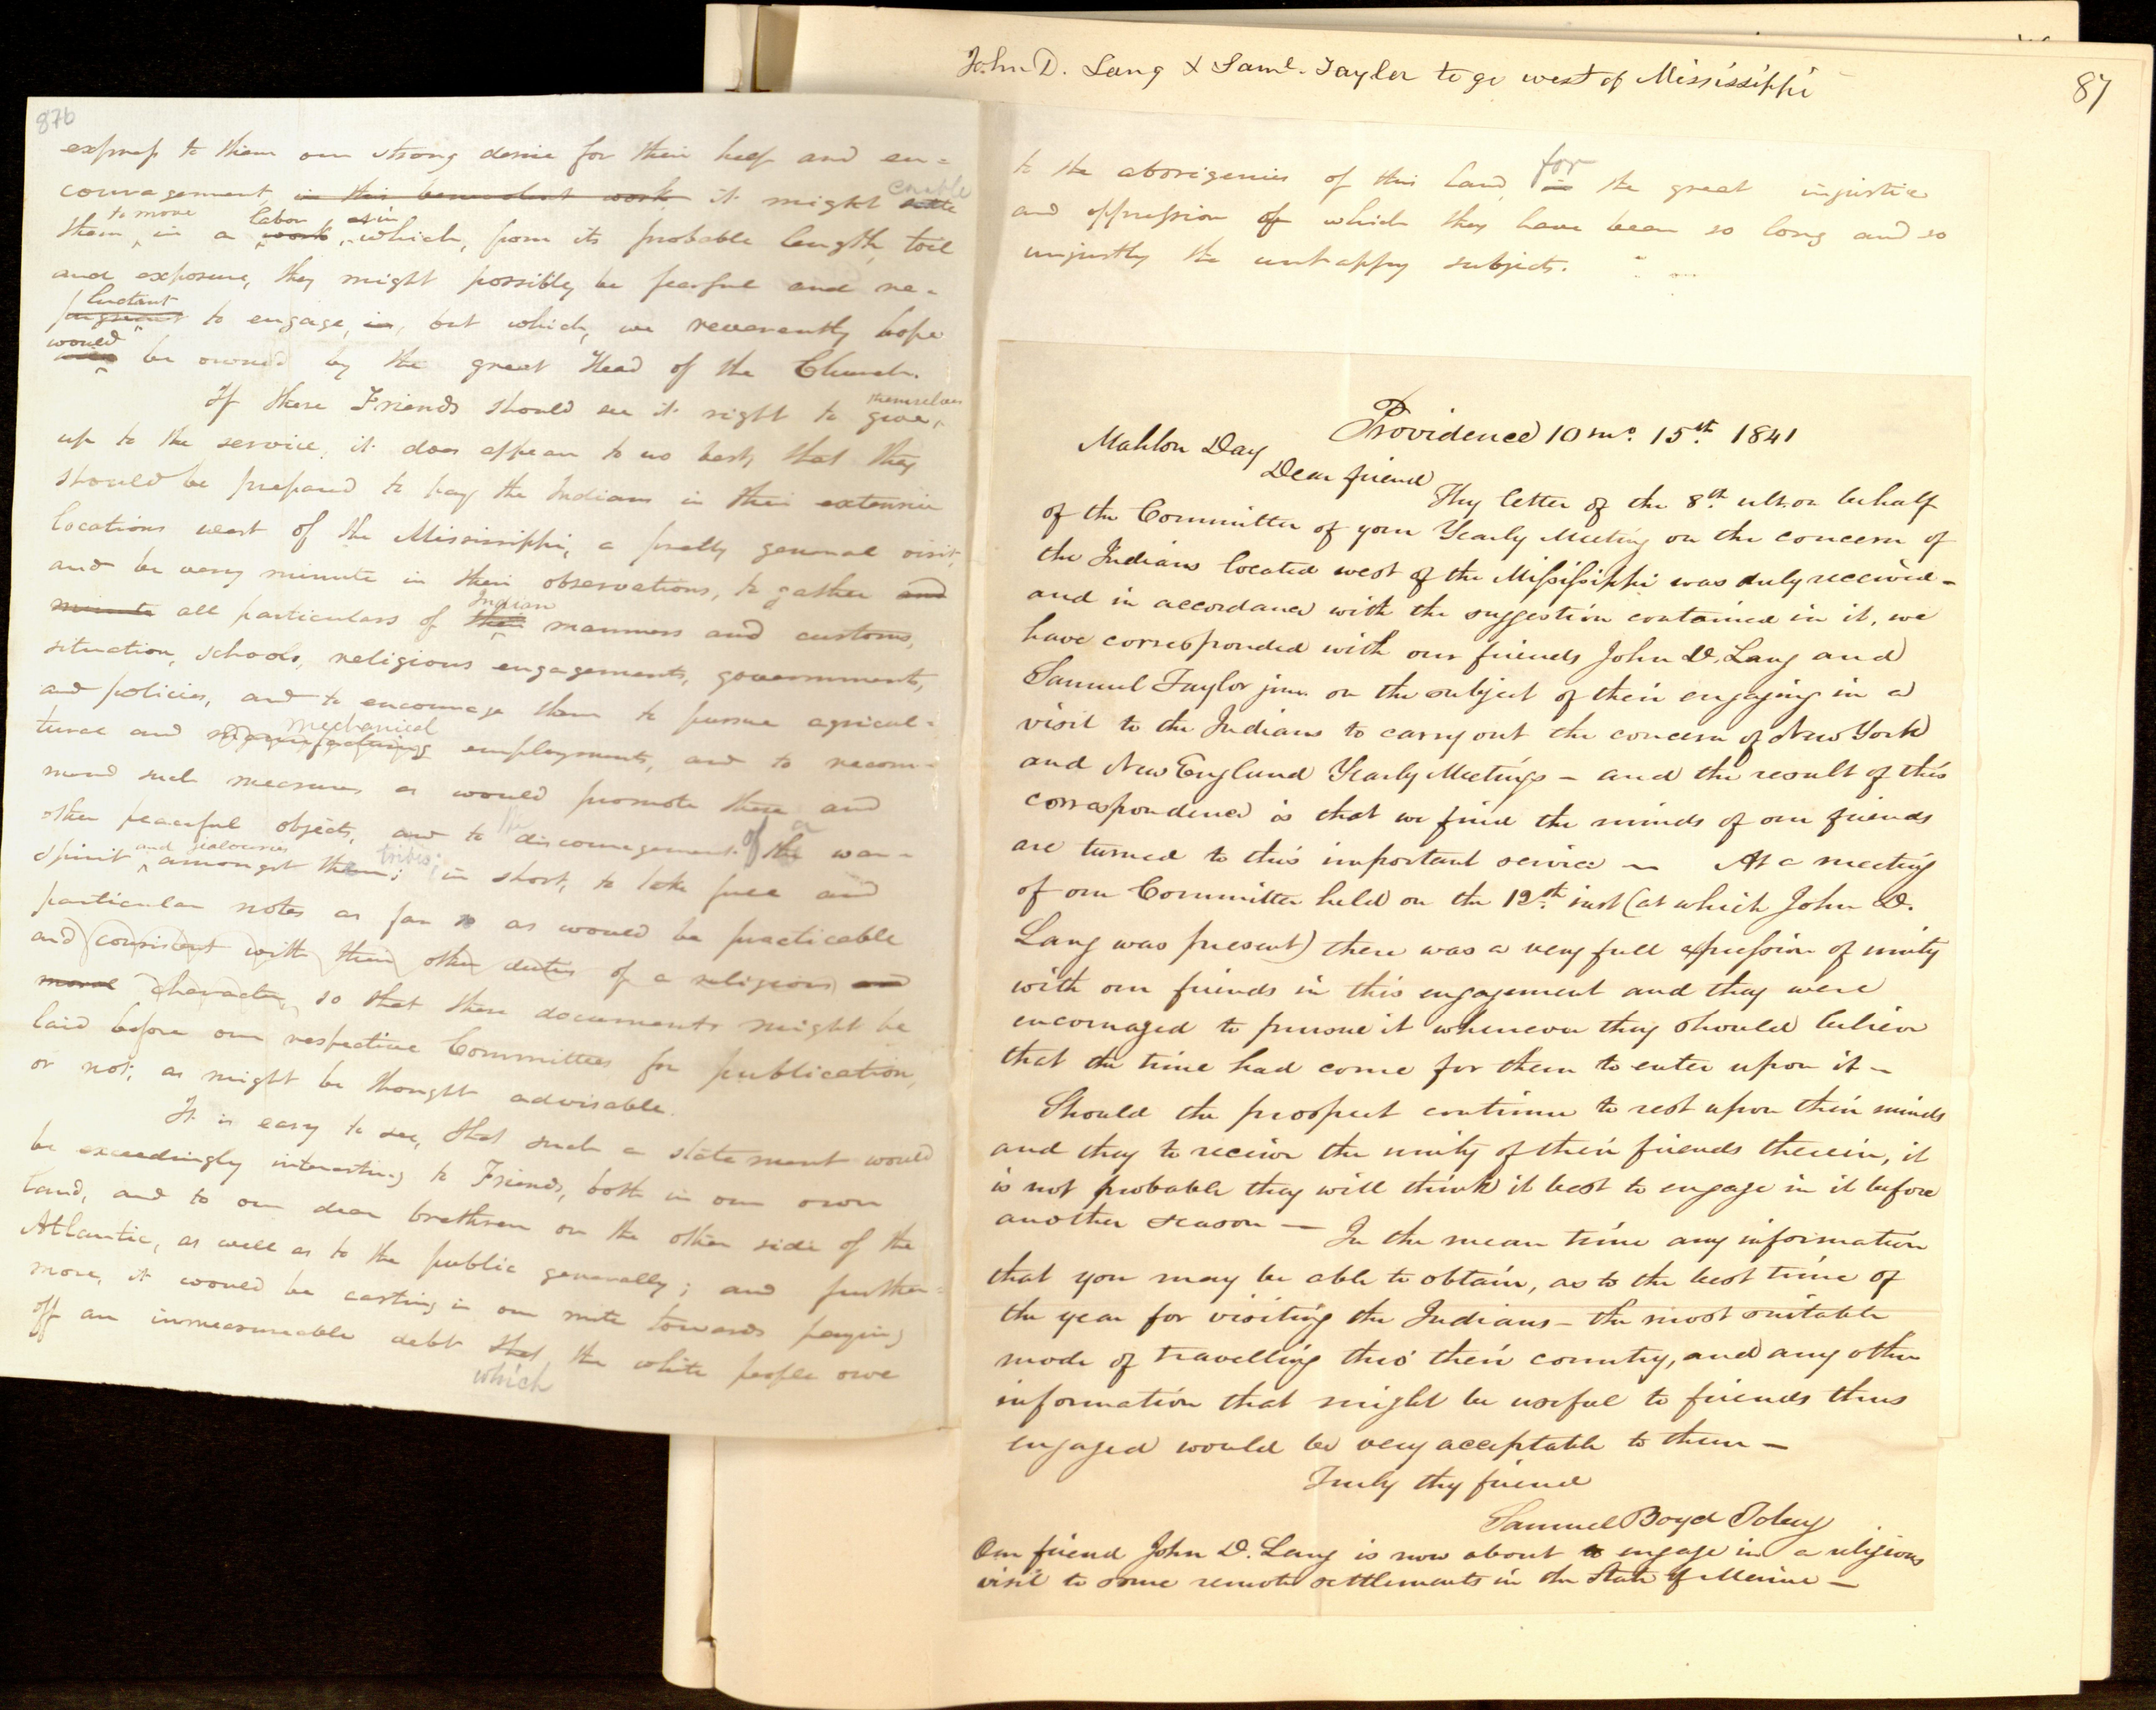 John D. Lang & Saml. Taylor to go west of Mississippi
87
87b
express to them our strong desire for their help and en=
couragement, in this benevolent work it might settle enable
them to move in a work labor, as in which, from its probable length, toil
and exposure, they might possibly be fearful and re-
pugnant luctant to engage, in, but which, we reverently hope
would be owned by the great Head of the Church.
If these Friends should see it right to give themselves
up to the service, it does appear to us best, that they
should be prepared to pay the Indians in their extensive
locations west of the Mississippi, a pretty general visit,
and be very minute in their observations, to gather and
minute all particulars of their Indian manners and customs,
situation, schools, religious engagements, governments,
and policies, and to encourage them to pursue agricul-
tural and manufacturing mechanical employments, and to recom-
mend such measures as would promote these and
other peaceful objects, and to the discouragement of the a war-
spirit and jealousies amongst them tribes; in short, to take full and
particular notes as far as would be practicable
and consistent with their other duties of a religious and
moral character, so that these documents might be
laid before our respective Committees for publication,
or not, as might be thought advisable.
It is easy to see, that such a statement would
be exceedingly interesting to Friends, both in our own
land, and to our dear brethren on the other side of the
Atlantic, as well as to the public generally; and further=
more, it would be casting in our mite towards paying
off an immeasurable debt that which the white people owe
to the aborigenies of this land, in for the great injustice
and oppression of which they have been so long and so
unjustly the unhappy subjects.
Providence 10 mo. 15th. 1841
Mahlon Day
Dear friend
Thy letter of the 8th. ult. on behalf
of the Committee of your Yearly Meeting on the concern of
the Indians located west of the Mississippi was duly received -
and in accordance with the suggestion contained in it, we
have corresponded with our friends John D. Lang and
Samuel Taylor junr. on the subject of their engaging in a
visit to the Indians to carry out the concern of New York
and New England Yearly Meetings - and the result of this
correspondence is that we find the minds of our friends
are turned to this important service - At a meeting
of our Committee held on the 12th. inst (at which John D.
Lang was present) there was a very full expression of unity
with our friends in this engagement and they were
encouraged to pursue it whenever they should believe
that the time had come for them to enter upon it -
Should the prospect continue to rest upon their minds
and they to receive the unity of their friends therein, it
is not probable they will think it best to engage in it before
another season - In the mean time any information
that you may be able to obtain, as to the best time of
the year for visiting the Indians - the most suitable
mode of travelling thro' their country, and any other
information that might be useful to friends thus
engaged would be very acceptable to them -
Truly thy friend
Samuel Boyd Tobey
Our friend John D. Lang is now about to engage in a religious
visit to some remote settlements in the State of Maine -